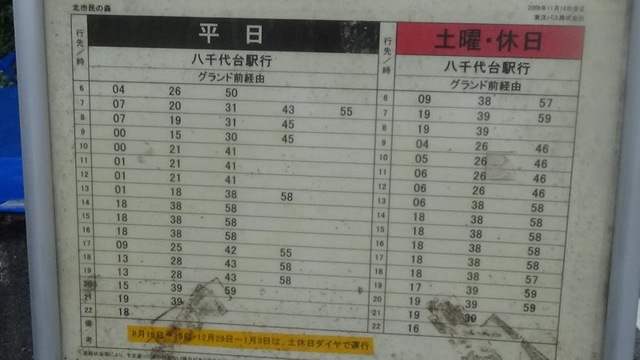 北市民の森
2008年11月16日改正
東洋バス株式会社
行先/時 平日
八千代台駅行
グランド前経由
6 04 26 50
7 07 20 31 43 55
8 07 19 31 45
9 00 15 30 45
10 00 21 41
11 00 21 41
12 01 21 41
13 01 18 38 58
14 18 38 58
15 18 38 58
16 18 38 58
17 09 25 42 55
18 13 28 43 58
19 13 28 43 58
20 15 39 59
21 19 39
22 18
行先/時 土曜・休日
八千代台駅行
グランド前経由
6 09 38 57
7 19 39 59
8 19 39
9 04 26 46
10 05 26 46
11 06 26 46
12 06 26 46
13 06 38 58
14 18 38 58
15 18 38 58
16 18 38 58
17 18 38 58
18 18 38 57
19 17 39 59
20 19 39 59
21 19 39
22 16
備考 8月15日 12月29日～1月3日は、土休日ダイヤで運行